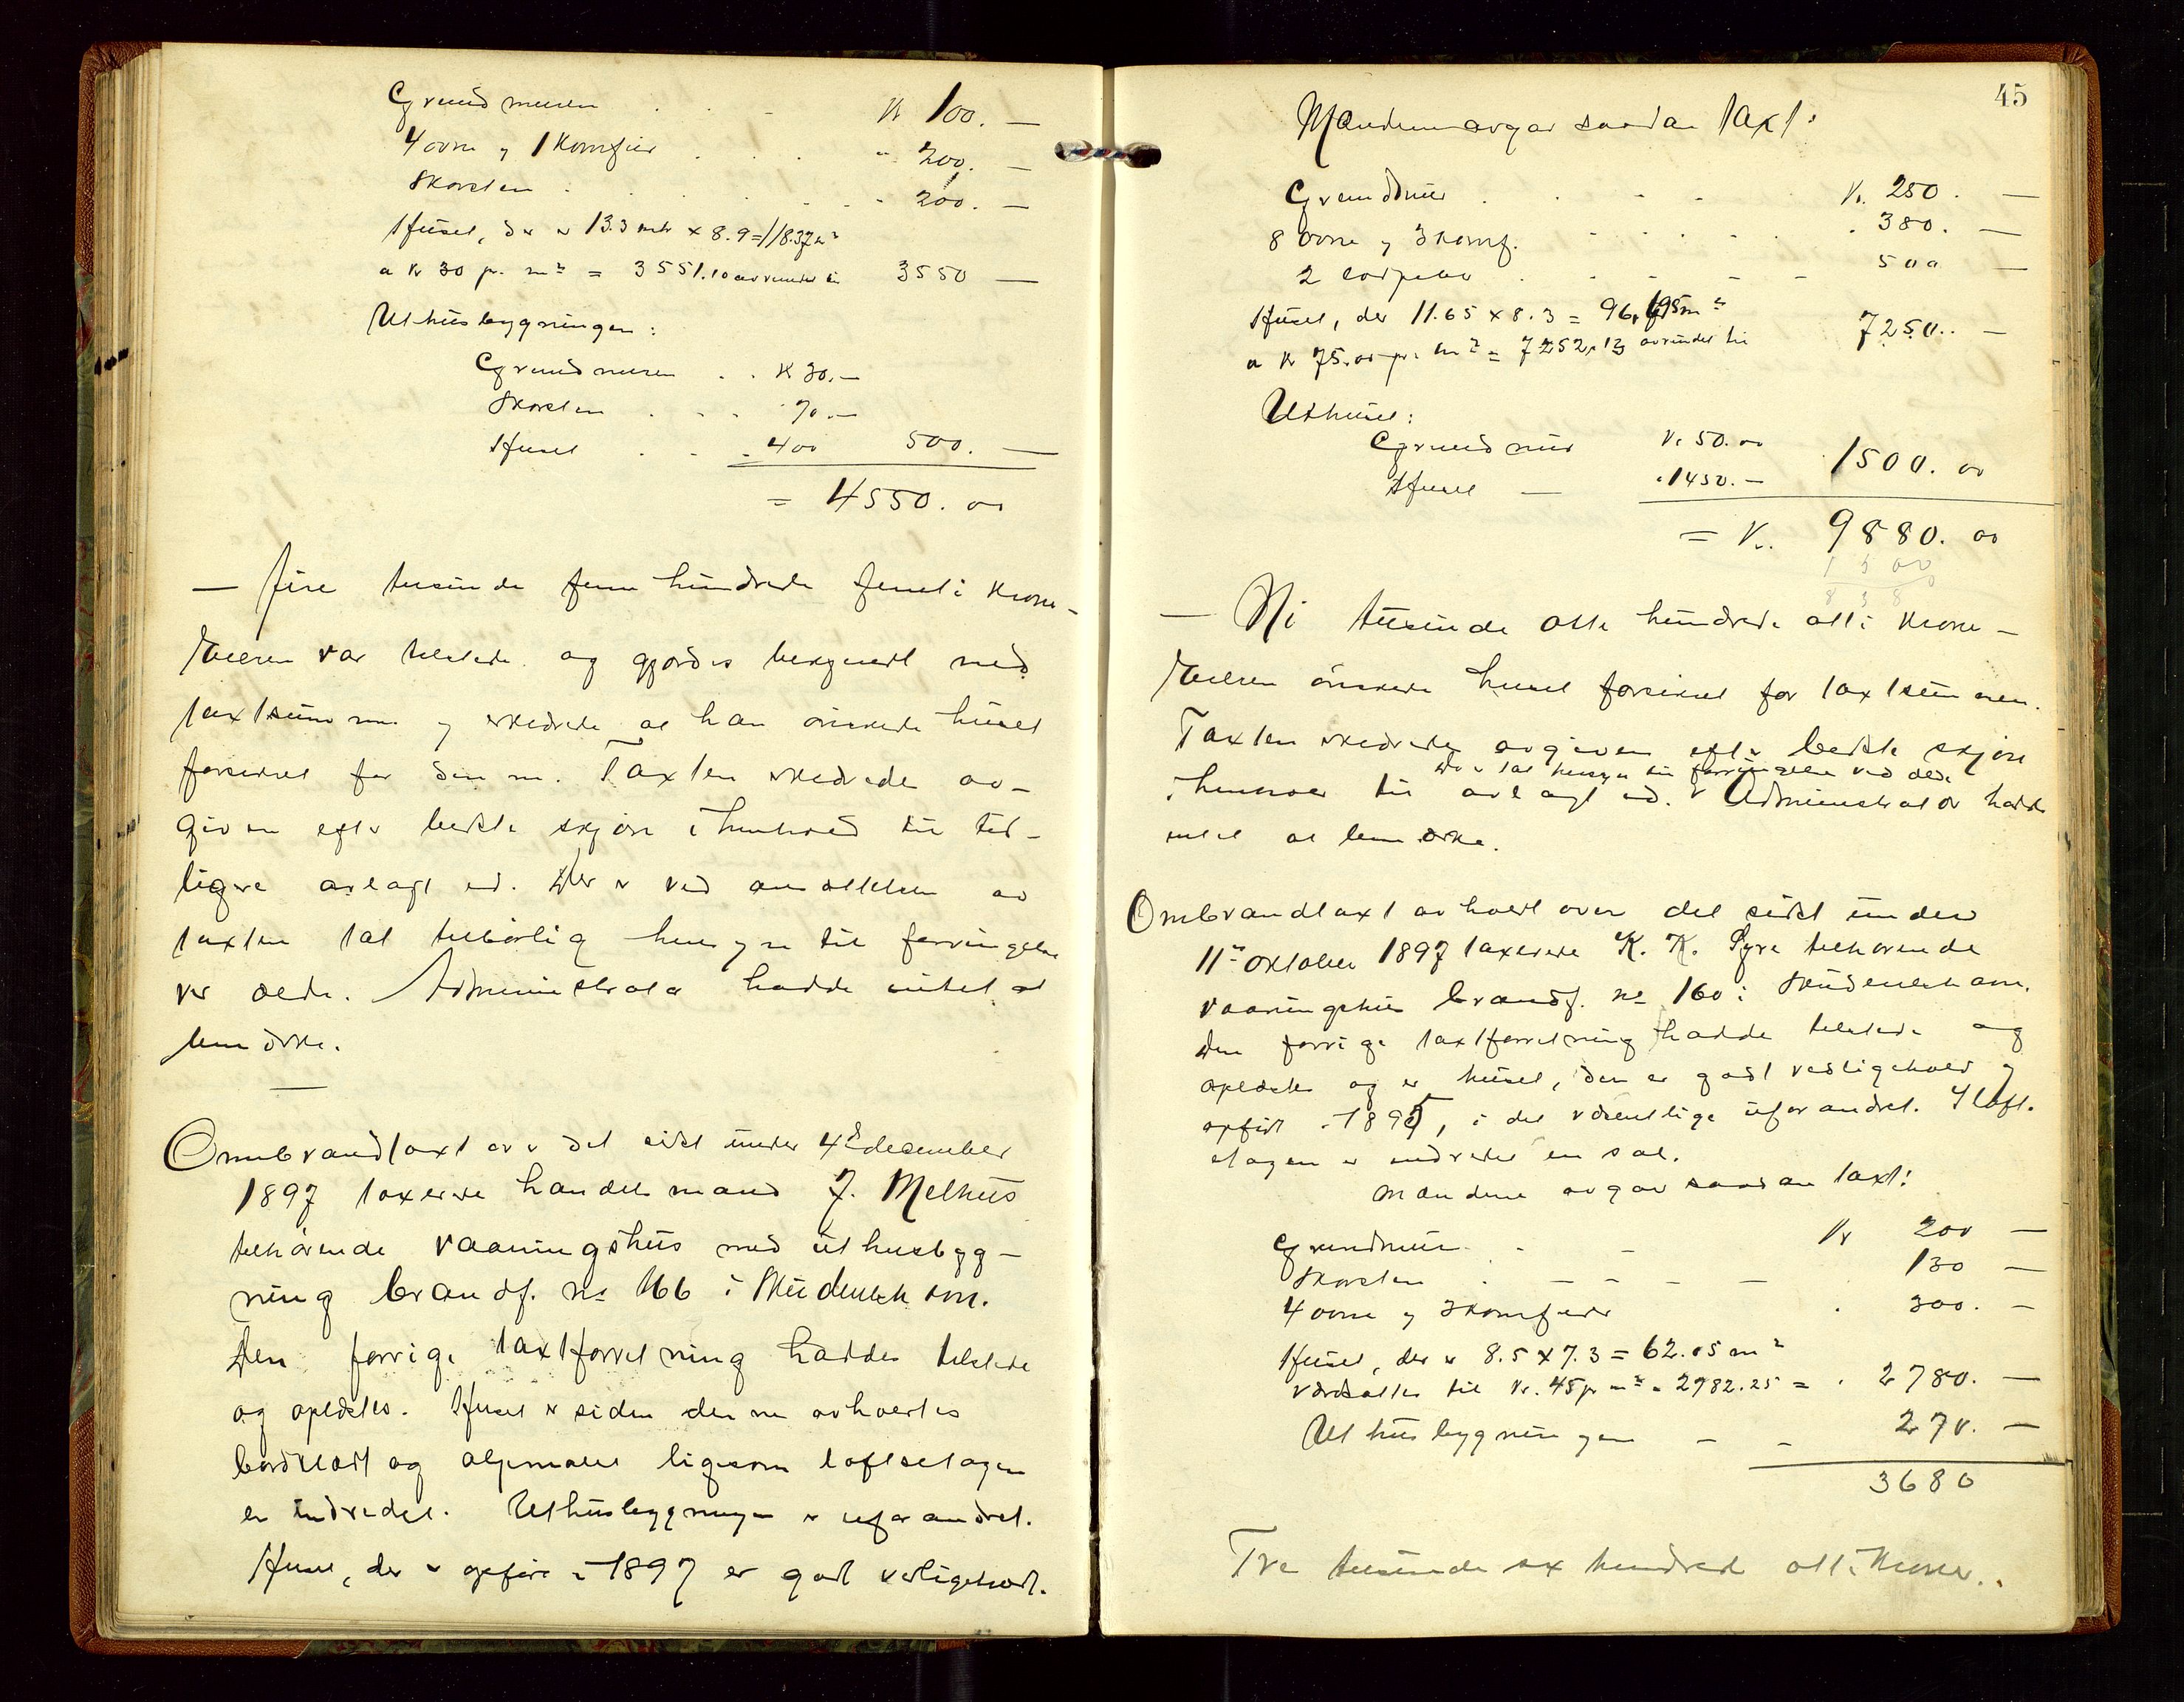 Grundmuren . . - Kr 100. —
4 ovne og 1 Komfur . . . " 200. —
Skorsten . . . . . " 200. —
Huset, der er 13.3 mtr x 8.9 = 118.37 m²
a Kr 30 pr. m² = 3551.10 avrundet til 3550 —
Uthusbygningen:
Grundmuren . . Kr 30.—
Skorsten . . . 70.—
Huset . . . 400 500. —
= 4550. 00
— Fire tusinde fem hundrede femti Krone —
Eieren var tilstede og gjordes bekjendt med
taxtsummen og erklærede at han ønskede huset
forsikret for denne. Taxten erklæredes av-
given efter bedste skjøn i henhold til tid-
ligere avlagt ed. Der er ved ansættelsen av
taxten tat tilbørlig hensyn til forringelse
ved ælde. Administrator hadde intet at
bemærke.
Ombrandtaxt over det sidst under 4de december
1897 taxerede handelsmand J. Melhus
tilhørende vaaningshus med uthusbyg-
ning brandf. no 166 i Skudeneshavn.
Den forrige taxtforretning haddes tilstede
og oplæstes. Huset er siden denne avholdtes
bordklædt og oljemalet ligesom loftsetagen
er indredet. Uthusbygningen er uforandret.
Huset, der er opført i 1897 er godt vedligeholdt.
45
Mændene avgav saadan taxt:
Grundmur . . - - Kr. 250. —
8 Ovne og 3 Komf. - . . . . 380. —
2 - - - 500 —
Huset, der 11.65 x 8.3 = 96,695 m²
a Kr 75.00 pr. m² = 7252,13 avrundet til 7250.. —
Uthuset:
Grundmur Kr. 50.00
Huset — " 1450.— 1500. 00
= Kr. 9880. 00
1500
838
— Ni tusinde otte hundrede otti Krone —
Eieren ønskede huset forsikret for taxtsummen.
Taxten erklæredes avgiven efter bedste skjøn
Der er tat hensyn til forringelse ved ælde
i henhold til avlagt ed. Administrator hadde
intet at bemærke.
Ombrandtaxt avholdt over det sidst under
11te oktober 1897 taxerede K. K. Syre tilhørende
vaaningshus brandf. no 160 i Skudeneshavn.
Den forrige taxtforretning hadde tilstede og
oplæstes og er huset, der er godt vedligeholdt og
opført i 1895, i det væsentlige uforandret. I loft-
etagen er indredet en sal.
Mændene avgav saadan taxt:
Grundmur . - Kr 200 —
Skorsten . — - - — 130 —
4 ovne og 3 Komfurer . 300. —
Huset, der er 8.5 x 7.3 = 62.05 m²
værdsættes til Kr. 45 pr m² = 2782.25 = . 2780. —
Uthusbygningen - - 270. —
3680
Tre tusinde sex hundrede otti Kroner..